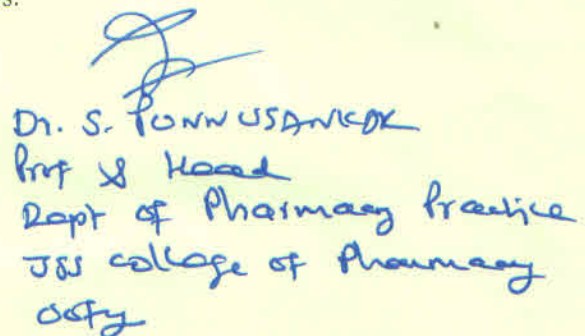 s.
Dr. S. PONNUSANKAR
Prof & Head
Dept of Pharmacy Practice
JSS College of Pharmacy
Ooty